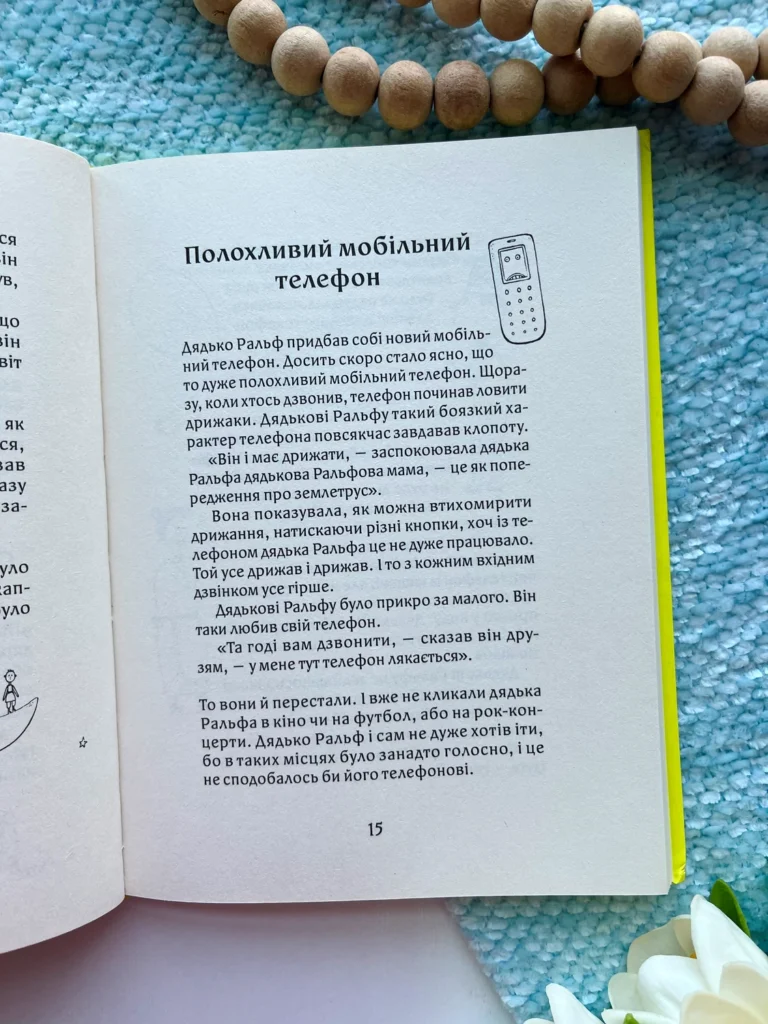 ся
він
ув,
що
він
віт
як
ся,
вав
азу
за-
уло
кап-
було
Полохливий мобільний
телефон
Дядько Ральф придбав собі новий мобіль-
ний телефон. Досить скоро стало ясно, що
то дуже полохливий мобільний телефон. Щора-
зу, коли хтось дзвонив, телефон починав ловити
дрижаки. Дядькові Ральфу такий боязкий ха-
рактер телефона повсякчас завдавав клопоту.
«Він і має дрижати, — заспокоювала дядька
Ральфа дядькова Ральфова мама, — це як попе-
редження про землетрус».
Вона показувала, як можна втихомирити
дрижання, натискаючи різні кнопки, хоч із те-
лефоном дядька Ральфа це не дуже працювало.
Той усе дрижав і дрижав. І то з кожним вхідним
дзвінком усе гірше.
Дядькові Ральфу було прикро за малого. Він
таки любив свій телефон.
«Та годі вам дзвонити, — сказав він дру-
зям, — у мене тут телефон лякається».
То вони й перестали. І вже не кликали дядька
Ральфа в кіно чи на футбол, або на рок-кон-
церти. Дядько Ральф і сам не дуже хотів іти,
бо в таких місцях було занадто голосно, і це
не сподобалось би його телефонові.
15